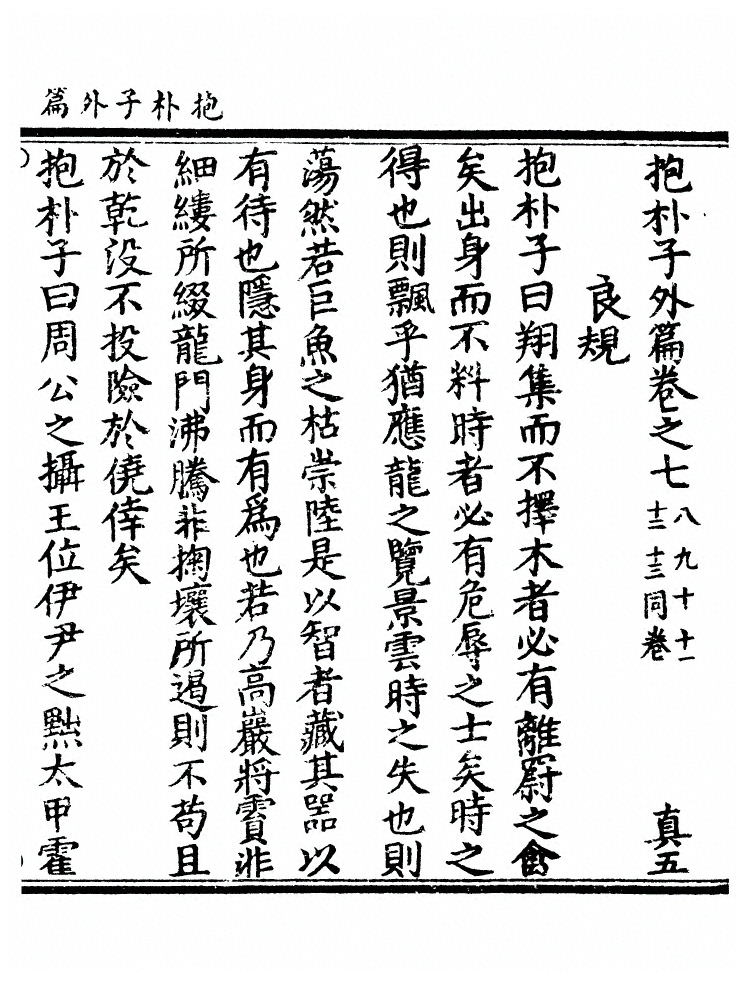 抱朴子外篇
抱朴子外篇卷之七 八九十十一十二十三同卷 真五
良規
抱朴子曰翔集而不擇木者必有離罻之禽
矣出身而不料時者必有危辱之士矣時之
得也則飄乎猶應龍之覽景雲時之失也則
蕩然若巨魚之枯崇陸是以智者藏其器以
有待也隱其身而有爲也若乃高巖將霣非
細縷所綴龍門沸騰非掬壤所遏則不苟且
於乾没不投險於僥倖矣
抱朴子曰周公之攝王位伊尹之黜太甲霍